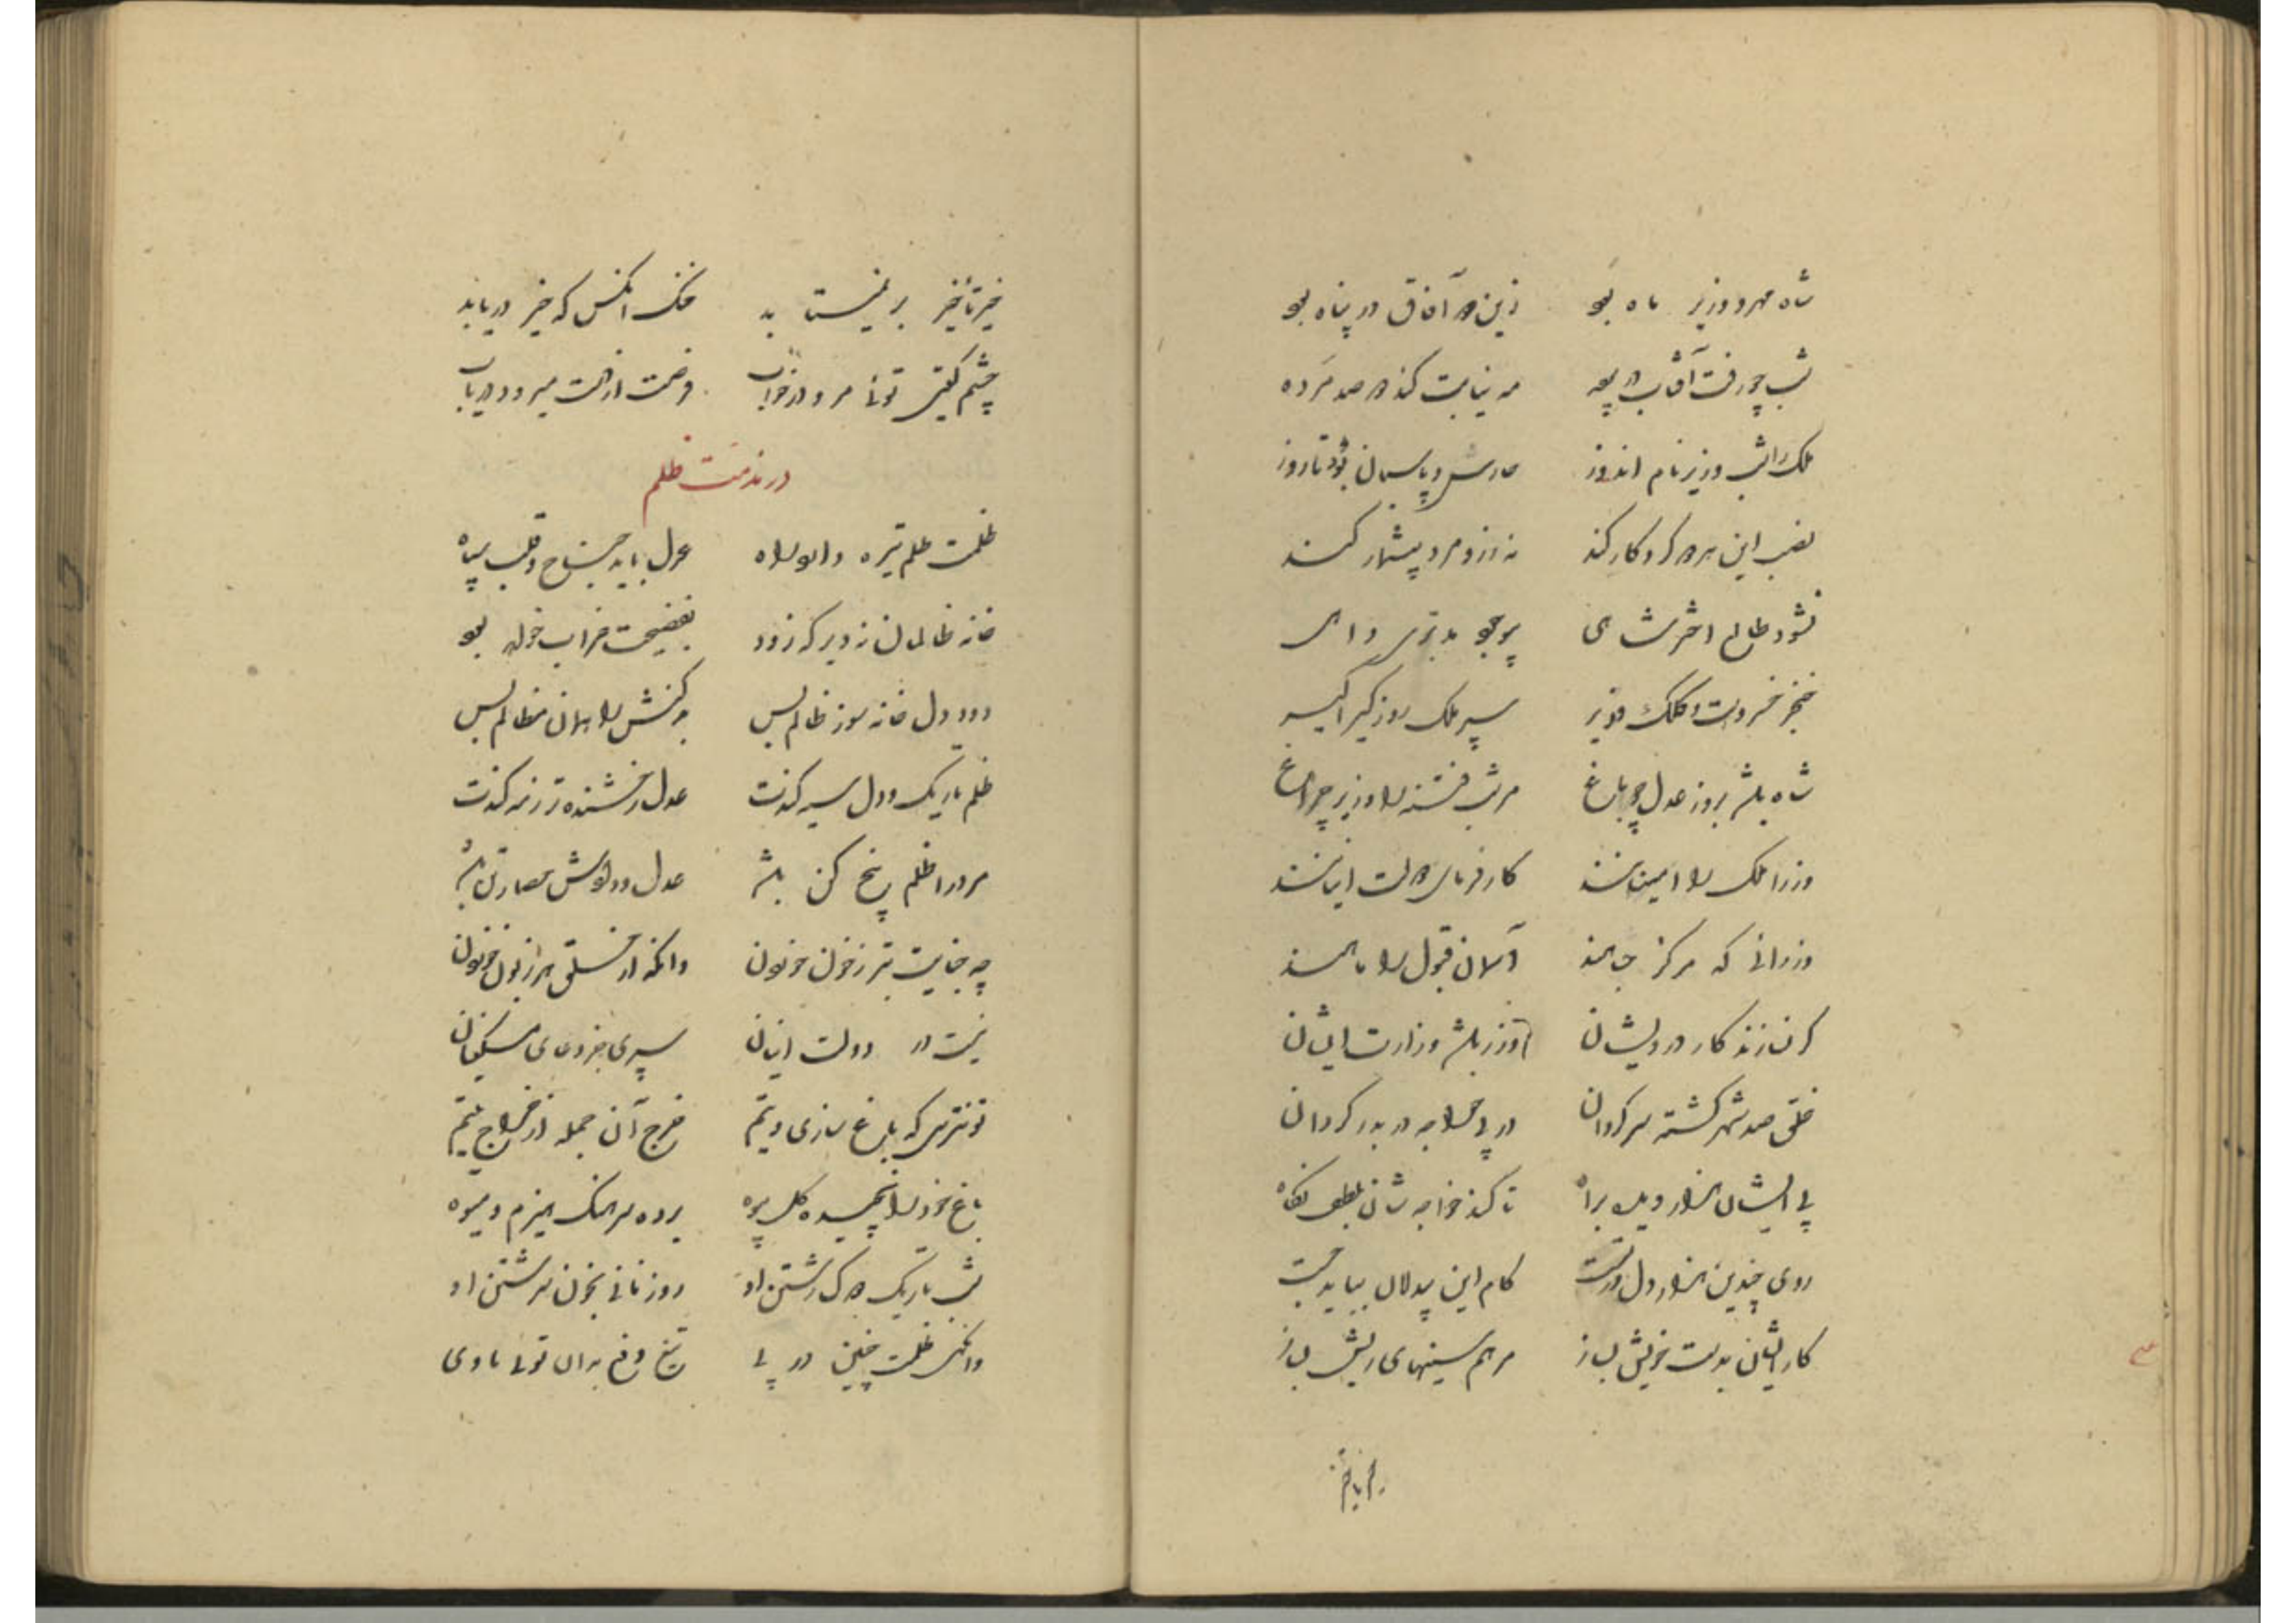 شاه مهر و وزیر ماه بود زین دو آفاق در پناه بود
شب چو رفت آفتاب در پرده مه نیابت کند دو صد مرده
ملک را شب وزیر نام اندوز حارس و پاسبان بود تا روز
نصب این هر دو کردگار کند نه زر و مرد بیشمار کند
نشود طالع اختر شاهی
خنجر خسروست و کلک وزیر سپر ملک روز گیراگیر
شاه باشد بروز عدل چو باغ مر شب فتنه را وزیر چراغ
وزرا ملک را امینانند کارفرمای دولت اینانند
وزرائی که مرکز جاهند آسمان قبول را ماهند
گر نسازند کار درویشان وزر باشد وزارت ایشان
خلق صد شهر گشته سرگردان در پی خواجه در بدر گردان
پی ایشان هزار دیده براه تا کند خواجه شان بلطف نگاه
روی چندین هزار دل در تست کام این بیدلان بباید جست
کار ایشان بدست خویش بساز مرهم سینهای ریش بساز
خیر تأخیر بر نیست بد خنک آنکس که خیر دریابد
چشم گیتی توئی مرو در خواب فرصت از دست میرود دریاب
در مذمت ظلم
ظلمت ظلم تیره دارد راه عدل باید جناح و قلب سپاه
خانه ظالمان نه دیر که زود بفضیحت خراب خواهد بود
دود دل خانه سوز ظالم بس بد کنش را بدان مظالم بس
ظلم تاریک و دل سیه کندت عدل رخشنده تر ز مه کندت
مرد را ظلم بیخ کن باشد عدل و دادش حصار تن باشد
چه جنایت بتر ز خون خوردن وانکه از خلق
نیست در دولت اینان سپری جز دعای مسکینان
تو نترسی که باغ سازی و تیم خرج آن جمله از خراج یتیم
باغ خود را نچیده گل بیوه برده سرهنگ هیزم و میوه
شب تاریک دوک رشتن او روز نانی بخون سرشتن او
وانگهی ظلمت چنین در پی توئی تا وی